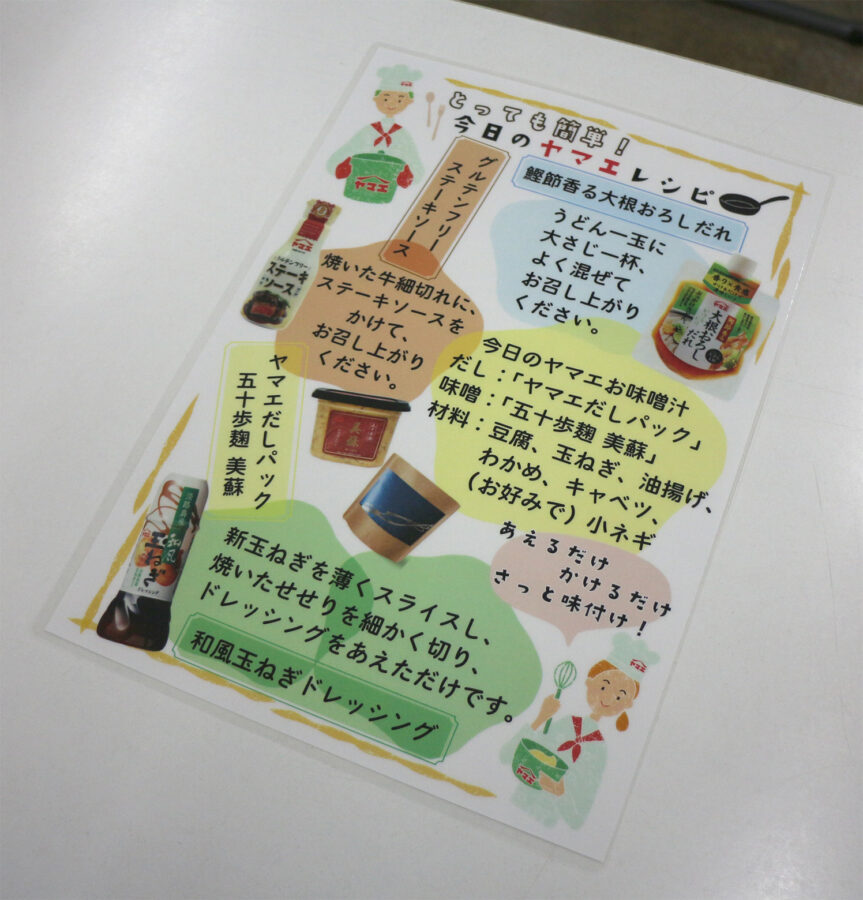 とっても簡単!
今日のヤマエレシピ
ヤマエ
グルテンフリー
ステーキソース
焼いた牛細切れに、
ステーキソースを
かけて、
お召し上がり
ください。
ヤマエ
グルテンフリー
ステーキ
ソース
鰹節香る大根おろしだれ
うどん一玉に
大さじ一杯、
よく混ぜて
お召し上がり
ください。
ヤマエ
大根おろし
だれ
今日のヤマエお味噌汁
だし:「ヤマエだしパック」
味噌:「五十歩麹 美蘇」
材料:豆腐、玉ねぎ、油揚げ、
わかめ、キャベツ、
(お好みで)小ネギ
ヤマエだしパック
五十歩麹 美蘇
美蘇
新玉ねぎを薄くスライスし、
焼いたせせりを細かく切り、
ドレッシングをあえただけです。
和風玉ねぎドレッシング
和風
玉ねぎ
ドレッシング
あえるだけ
かけるだけ
さっと味付け!
ヤマエ
ヤマエ